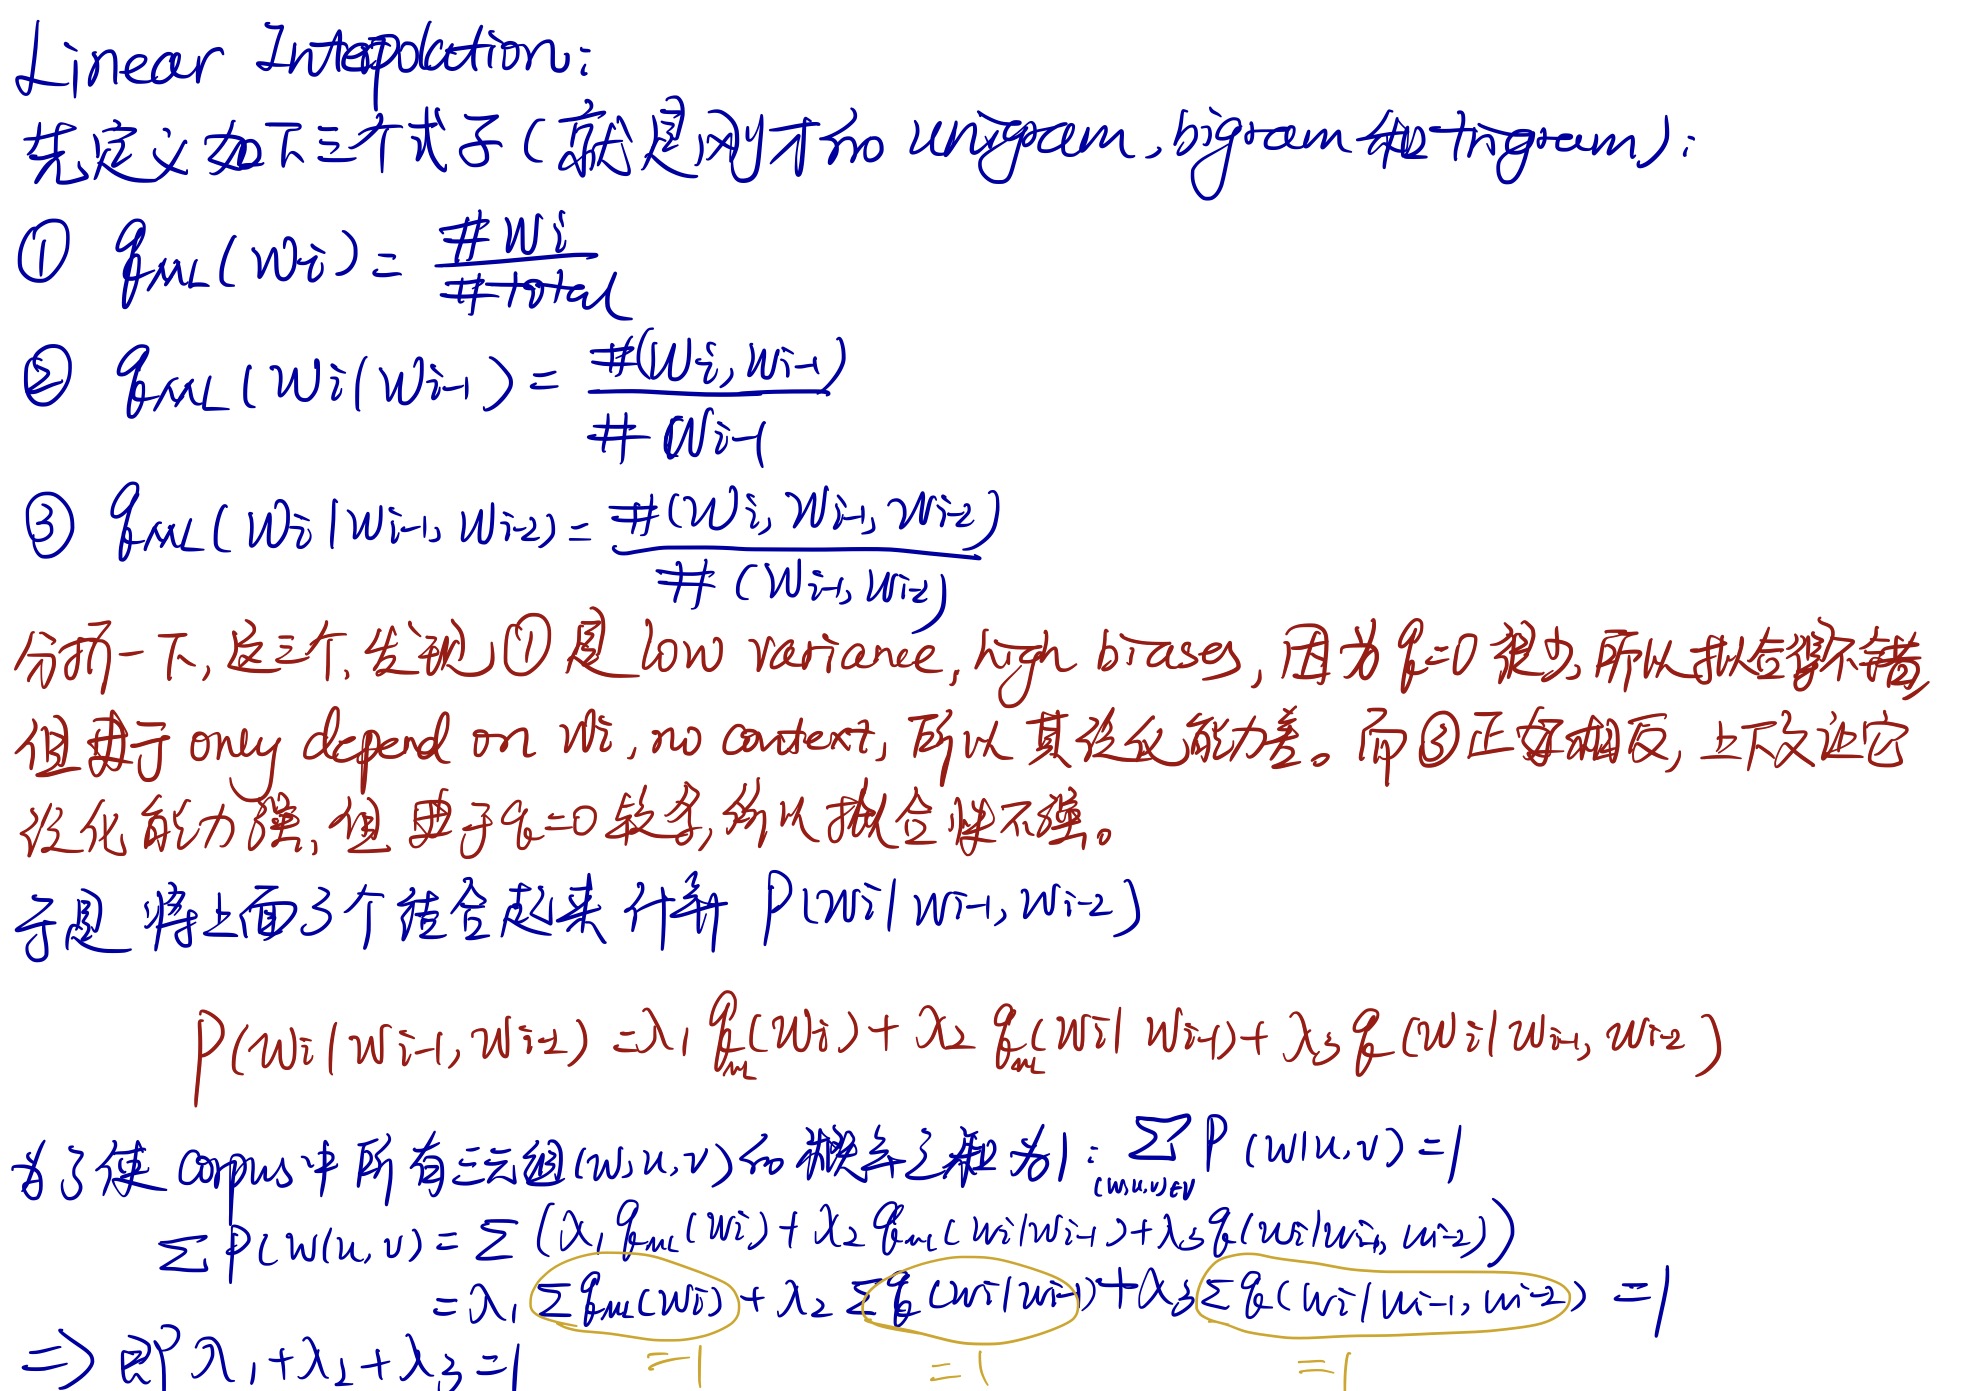 Linear Interpolation:
先定义如下三个式子(就是刚才的 unigram, bigram 和 trigram):
① q_ML(wi) = #wi / #total
② q_ML(wi|wi-1) = #(wi, wi-1) / #wi-1
③ q_ML(wi|wi-1, wi-2) = #(wi, wi-1, wi-2) / #(wi-1, wi-2)
分析一下, 这三个, 发现 ① 是 low variance, high biases, 因为 q=0 很少, 所以拟合得不错,
但由于 only depend on wi, no context, 所以其泛化能力差。而③正好相反, 上下文让它
泛化能力强, 但由于q=0较多, 所以拟合性不强。
于是将上面3个结合起来计算 P(wi|wi-1, wi-2)
P(wi|wi-1, wi-2) = λ1 q_ML(wi) + λ2 q_ML(wi|wi-1) + λ3 q(wi|wi-1, wi-2)
为了使 corpus中所有三元组(w,u,v)的概率之和为1: Σ_(w,u,v)∈V P(w|u,v) = 1
Σ P(w|u,v) = Σ (λ1 q_ML(wi) + λ2 q_ML(wi|wi-1) + λ3 q(wi|wi-1, wi-2))
= λ1 Σ q_ML(wi) + λ2 Σ q(wi|wi-1) + λ3 Σ q(wi|wi-1, wi-2) = 1
=1 =1 =1
⇒ 即 λ1+λ2+λ3=1